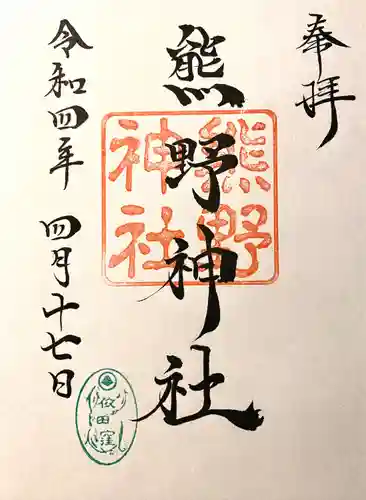 奉拝
熊野神社
熊野
神社
令和四年 四月十七日
依田窪